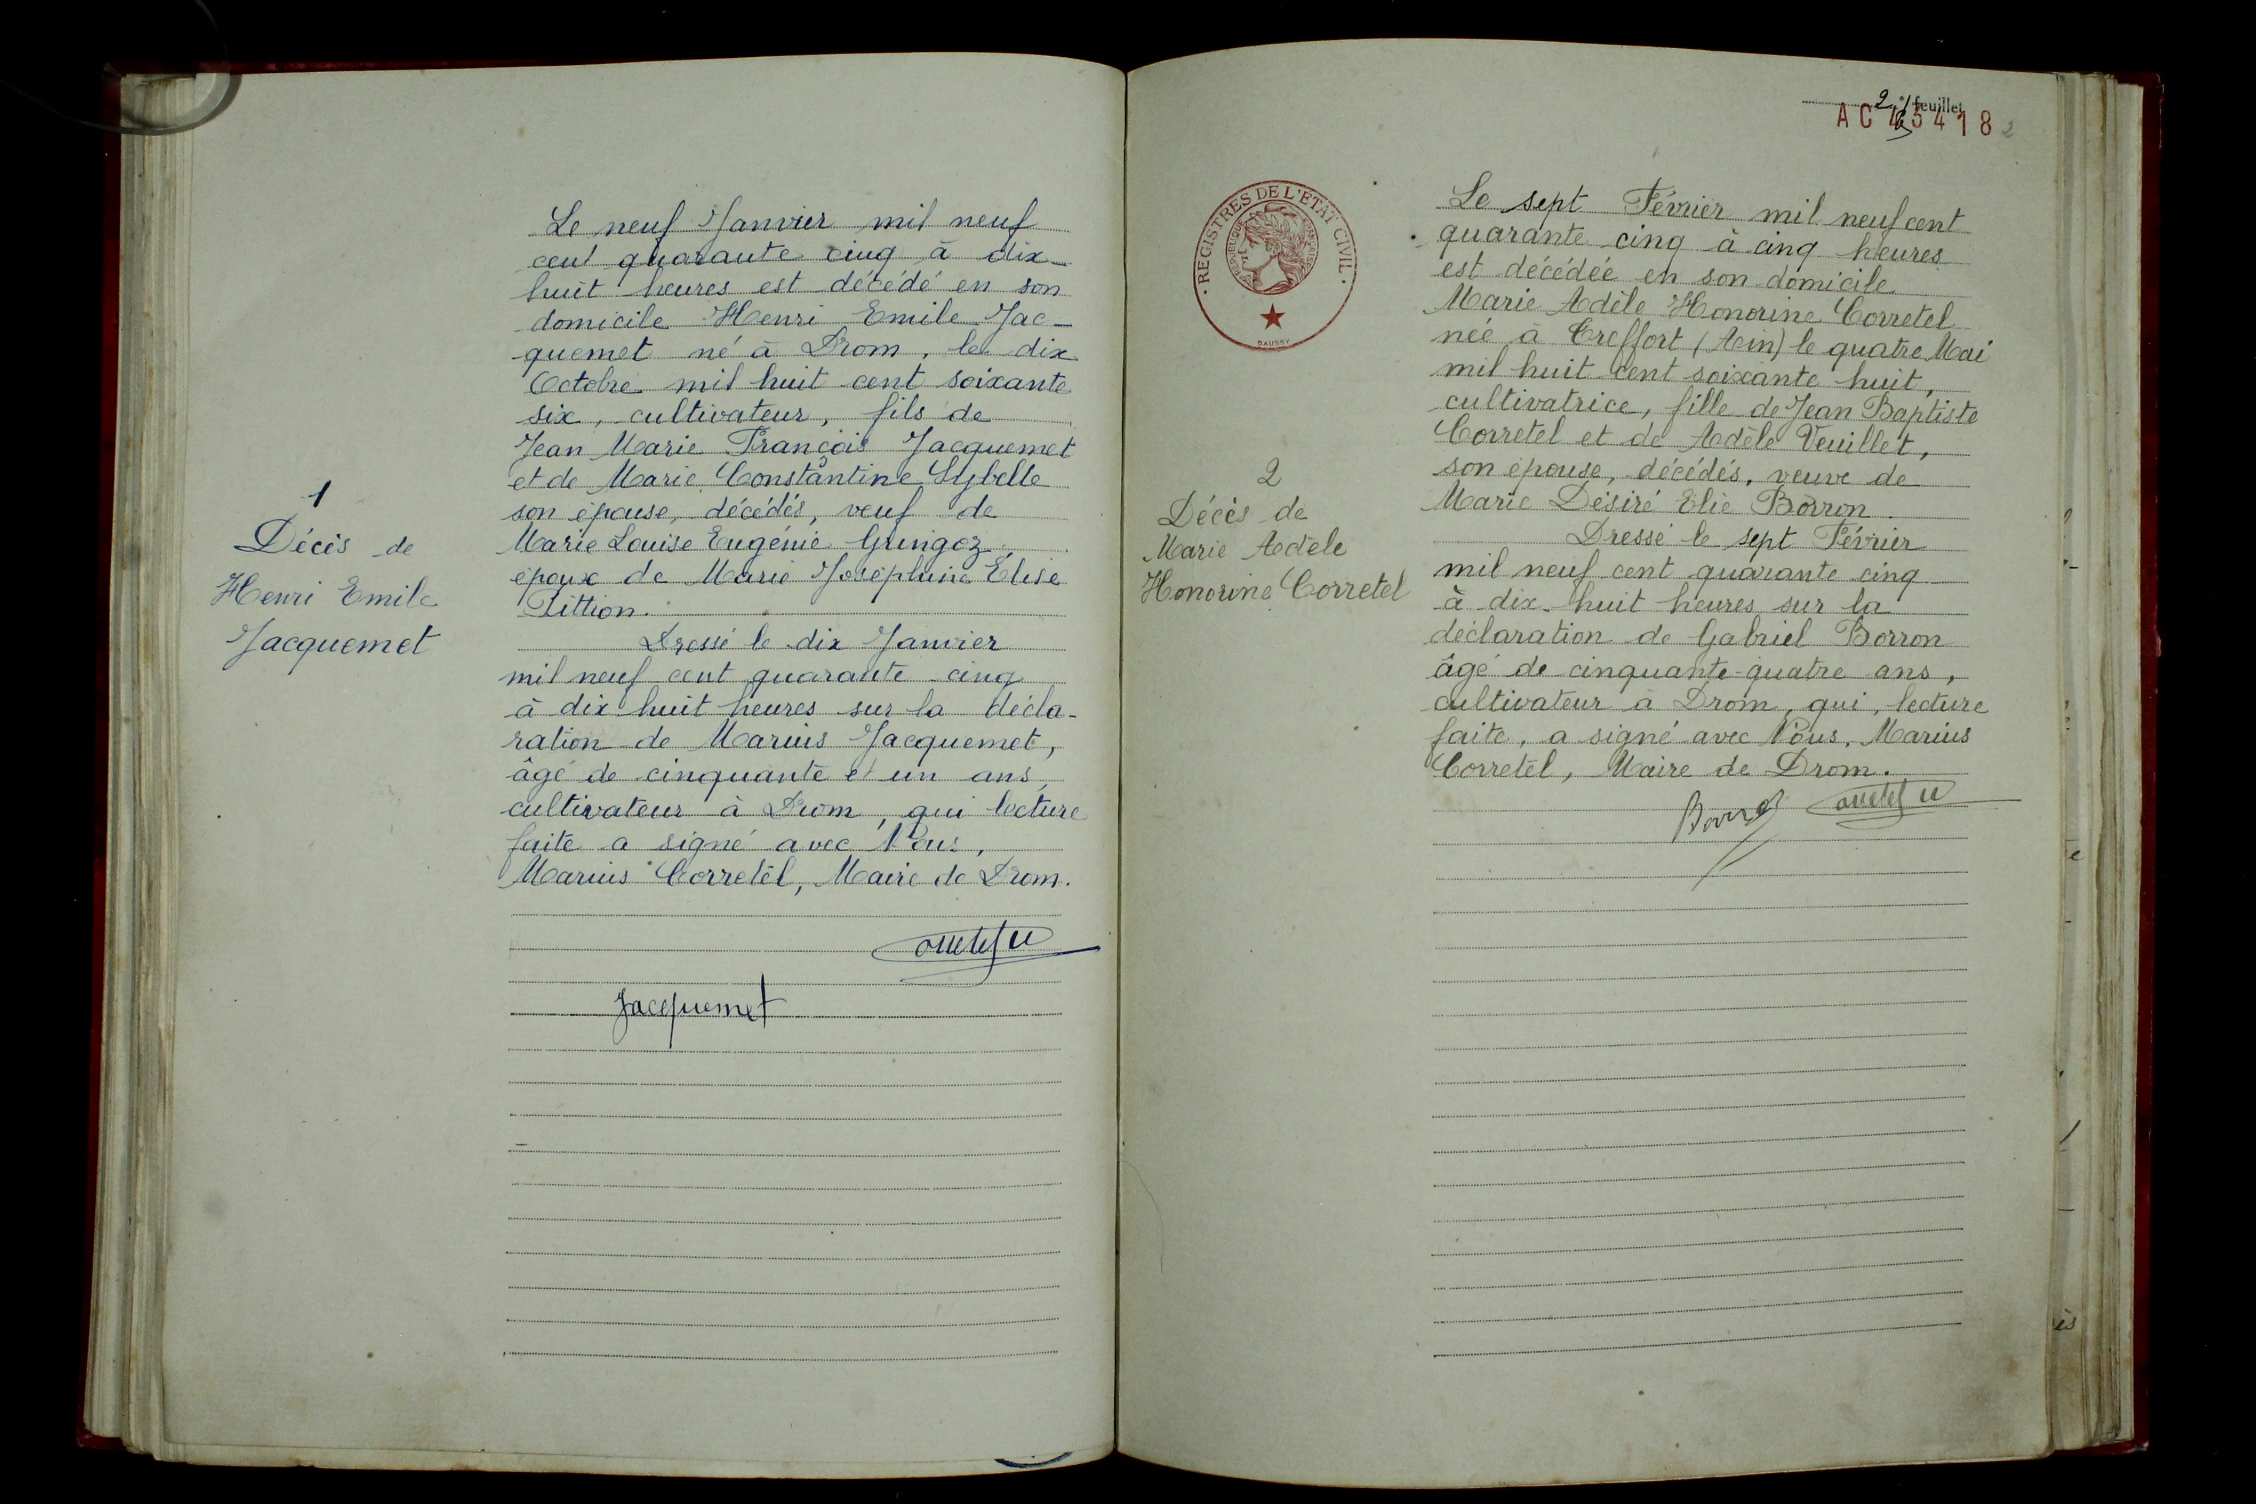 Le neuf Janvier mil neuf
cent quarante cinq à dix-
huit heures est décédé en son
domicile Henri Emile Jac-
quemet né à Drom, le dix
Octobre mil huit cent soixante
six, cultivateur, fils de
Jean Marie François Jacquemet
et de Marie Constantine Sybelle
son épouse, décédés, veuf de
Marie Louise Eugénie Gringoz,
époux de Marie Joséphine Elise
Pittion.
Dressé le dix Janvier
mil neuf cent quarante cinq
à dix huit heures sur la décla-
ration de Marius Jacquemet,
âgé de cinquante et un ans,
cultivateur à Drom, qui lecture
faite a signé avec Nous,
Marius Corretel, Maire de Drom.
Jacquemet
1
Décès de
Henri Emile
Jacquemet
2 feuillet
AC 45418 2
REGISTRES DE L'ETAT CIVIL
DAUSSY
2
Décès de
Marie Adèle
Honorine Corretel
Le sept Février mil neuf cent
quarante cinq à cinq heures
est décédée en son domicile
Marie Adèle Honorine Corretel
née à Treffort (Ain) le quatre Mai
mil huit cent soixante huit,
cultivatrice, fille de Jean Baptiste
Corretel et de Adèle Veuillet,
son épouse, décédés, veuve de
Marie Désiré Elie Borron.
Dressé le sept Février
mil neuf cent quarante cinq
à dix-huit heures sur la
déclaration de Gabriel Borron
âgé de cinquante-quatre ans,
cultivateur à Drom, qui, lecture
faite, a signé avec Nous, Marius
Corretel, Maire de Drom.